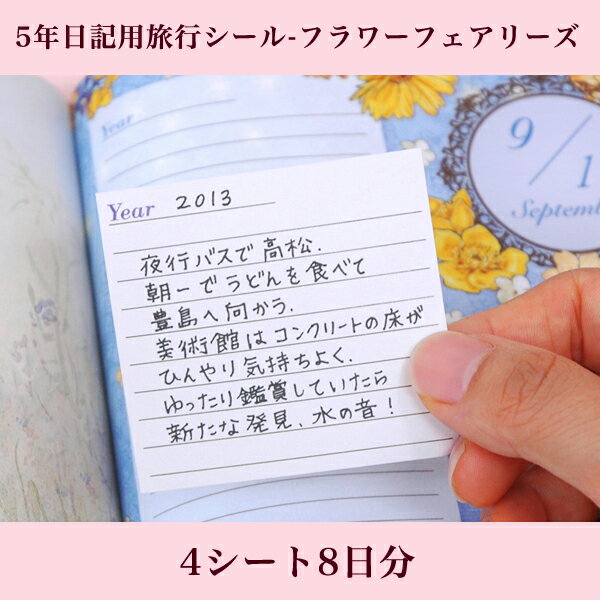 5年日記用旅行シール-フラワーフェアリーズ
Year
9/1
Septemb
Year 2013
夜行バスで高松.
朝一でうどんを食べて
豊島へ向かう.
美術館はコンクリートの床が
ひんやり気持ちよく.
ゆったり鑑賞していたら
新たな発見、水の音!
4シート8日分